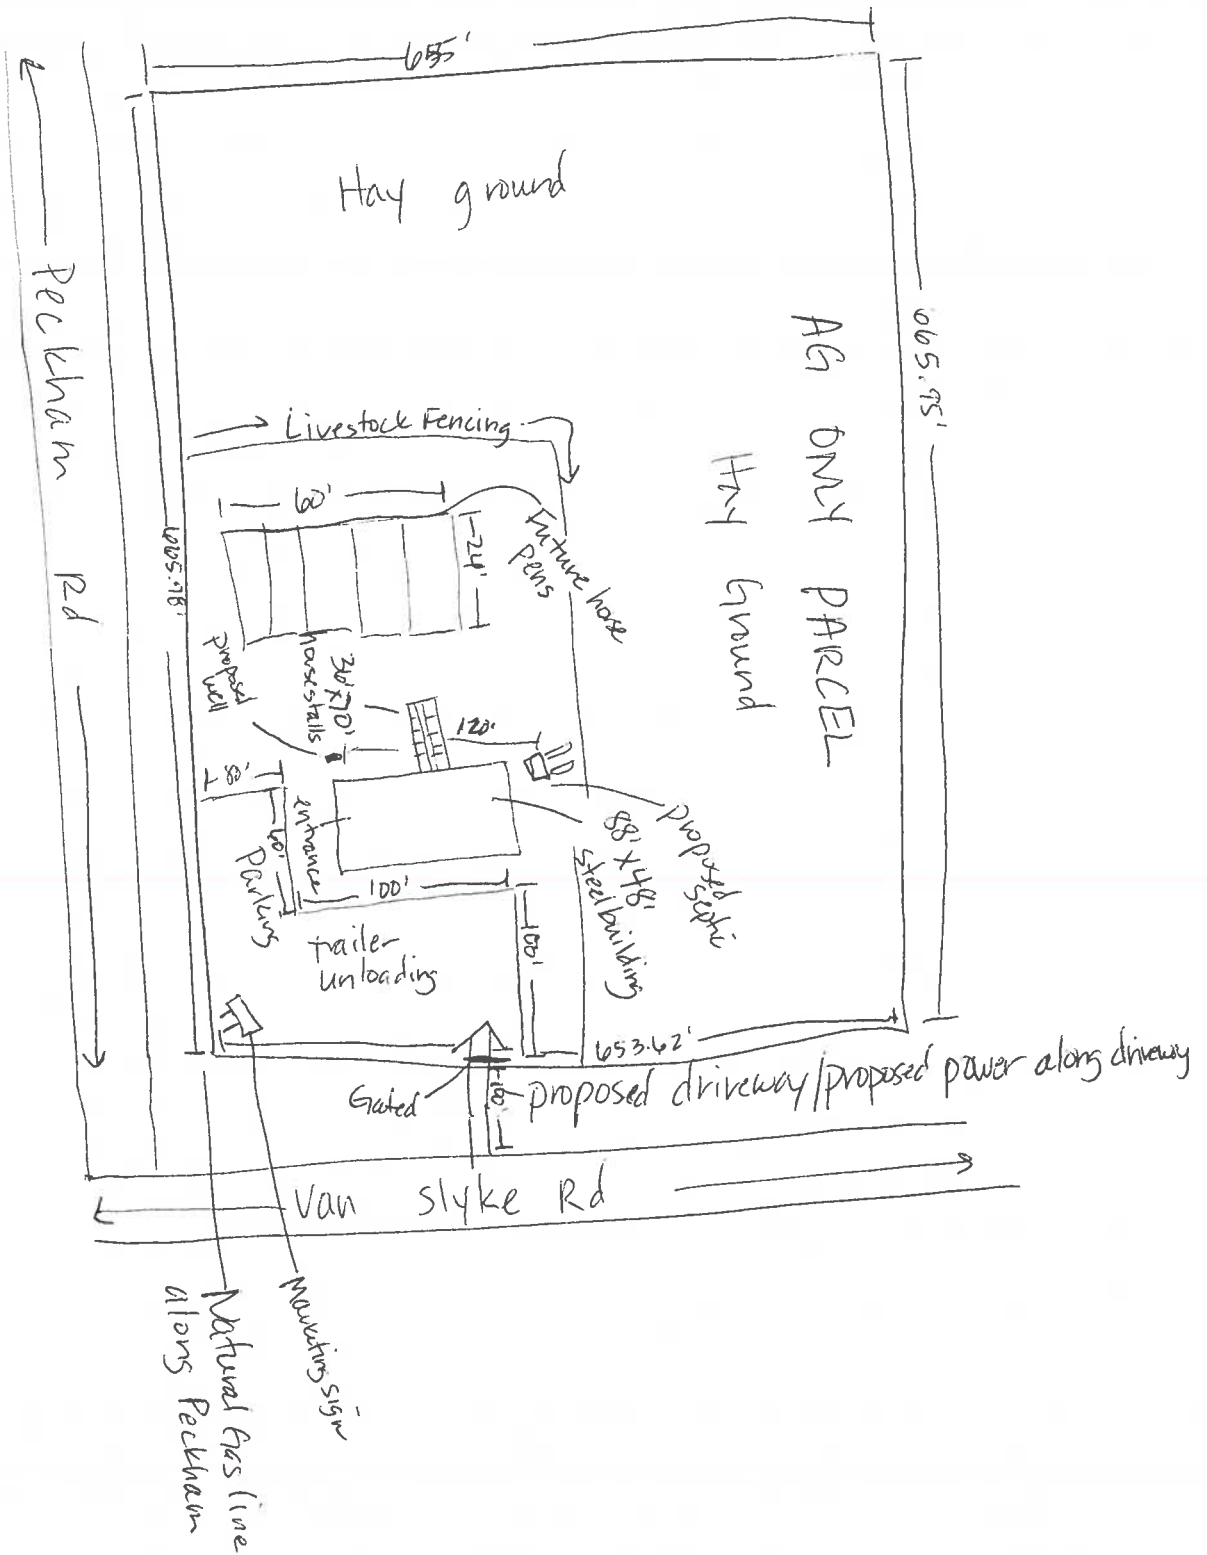 655'
Hay ground
Peckham Rd
665.75'
AG ONLY PARCEL
Hay Ground
Livestock Fencing
60'
24'
Future horse
pens
665.78'
proposed
well
36' x 70'
horse stalls
120'
80'
60'
entrance
Parking
88' x 48'
steel building
proposed
septic
100'
100'
trailer
unloading
653.62'
Gated
100'
proposed driveway/proposed power along driveway
Van Slyke Rd
Marketing sign
Natural Gas line
along Peckham